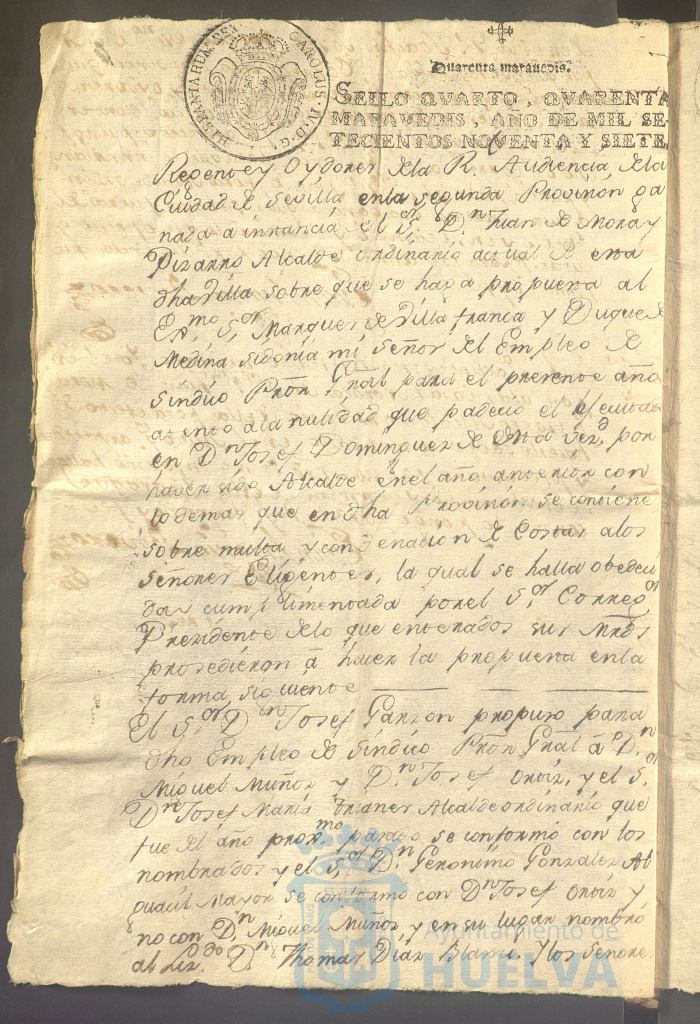 HISPANIARUM REX CAROLUS IV D G
Quarenta maravedis.
SELLO QVARTO, QVARENTA
MARAVEDIS, AÑO DE MIL SE-
TECIENTOS NOVENTA Y SIETE.
Regente y Oydores de la R. Audiencia de la
Ciudad de Sevilla en la segunda Provision ga
nada a instancia del S.or D.n Juan de Mora y
Pizarro Alcalde ordinario actual de esta
dha Villa sobre que se haga propuesta al
Ex.mo S.or Marques de Villafranca y Duque de
Medina sidonia mi Señor del Empleo de
Sindico Prõr Gñal para el presente año
atento ala nulidad que padecio el
en D.n Josef Dominguez de esta vez.d por
haver sido Alcalde en el año anterior con
lo demas que en dha Provision se contiene
sobre multa y condenacion de Costas alos
Señores Eligentes, la qual se halla obedeci
da y cumplimentada por el S.or Correg.or
Presidente delo que enterados sus Mrds
prosedieron á hacer la propuesta en la
forma siguiente
El S.or D.n Josef Garzon propuso para
dho Empleo de Sindico Prõr Gñal á D.n
Miguel Muñoz y D.n Josef Ortiz, y el S.or
D.n Josef Maria Trianer Alcalde ordinario que
fue el año prox.mo pasado se conformó con los
nombrados y el S.or D.n Geronimo Gonzalez Al
guacil Mayor se conformó con D.n Josef Ortiz y
no con D.n Miguel Muñoz y en su lugar nombró
al Liz.do D.n Thomas Diaz Blanco. Y los Señores
Ayuntamiento de
HUELVA